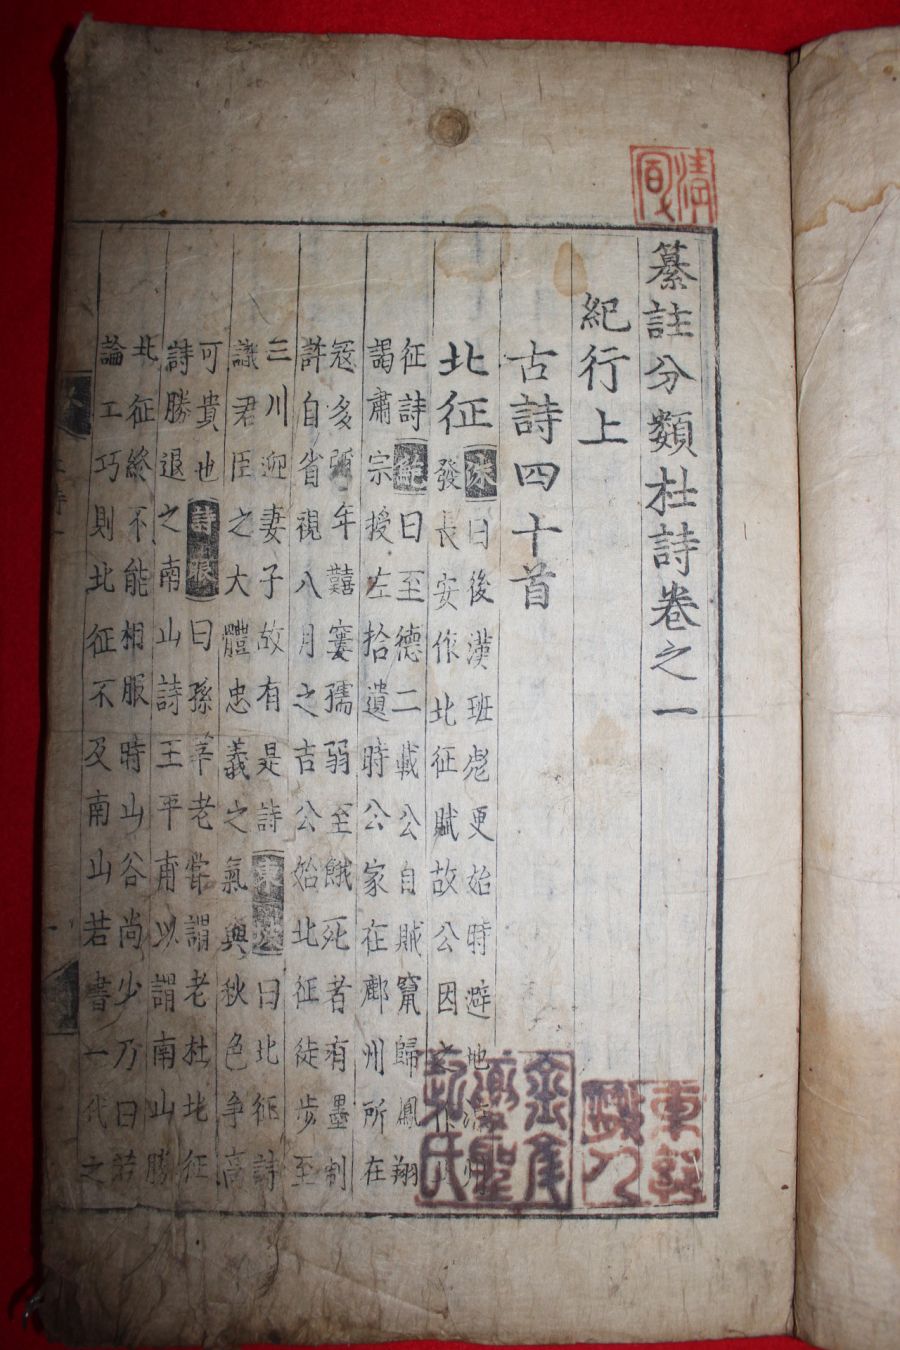 纂註分類杜詩卷之一
紀行上
古詩四十首
北征
洙曰後漢班彪更始時避地涼州
發長安作北征賦故公因之作
征詩鮑曰至德二載公自賊竄歸鳳翔
謁肅宗授左拾遺時公家在鄜州所在
寇多彌年囏窶孺弱至餓死者有墨制
許自省視八月之吉公始北征徒步至
三川迎妻子故有是詩東坡曰北征詩
識君臣之大體忠義之氣與秋色爭高
可貴也詩眼曰孫莘老嘗謂老杜北征
詩勝退之南山詩王平甫以謂南山勝
北征終不能相服時山谷尚少乃曰若
論工巧則北征不及南山若書一代之